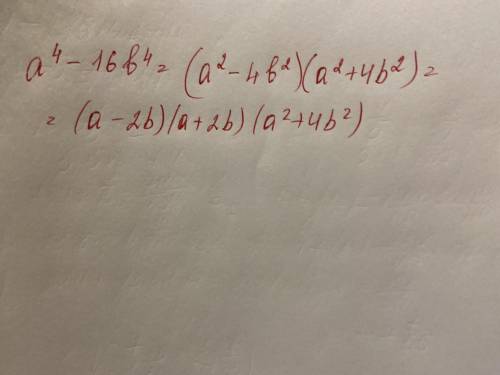 a⁴ - 16b⁴ = (a² - 4b²)(a² + 4b²) =
= (a - 2b)(a + 2b)(a² + 4b²)